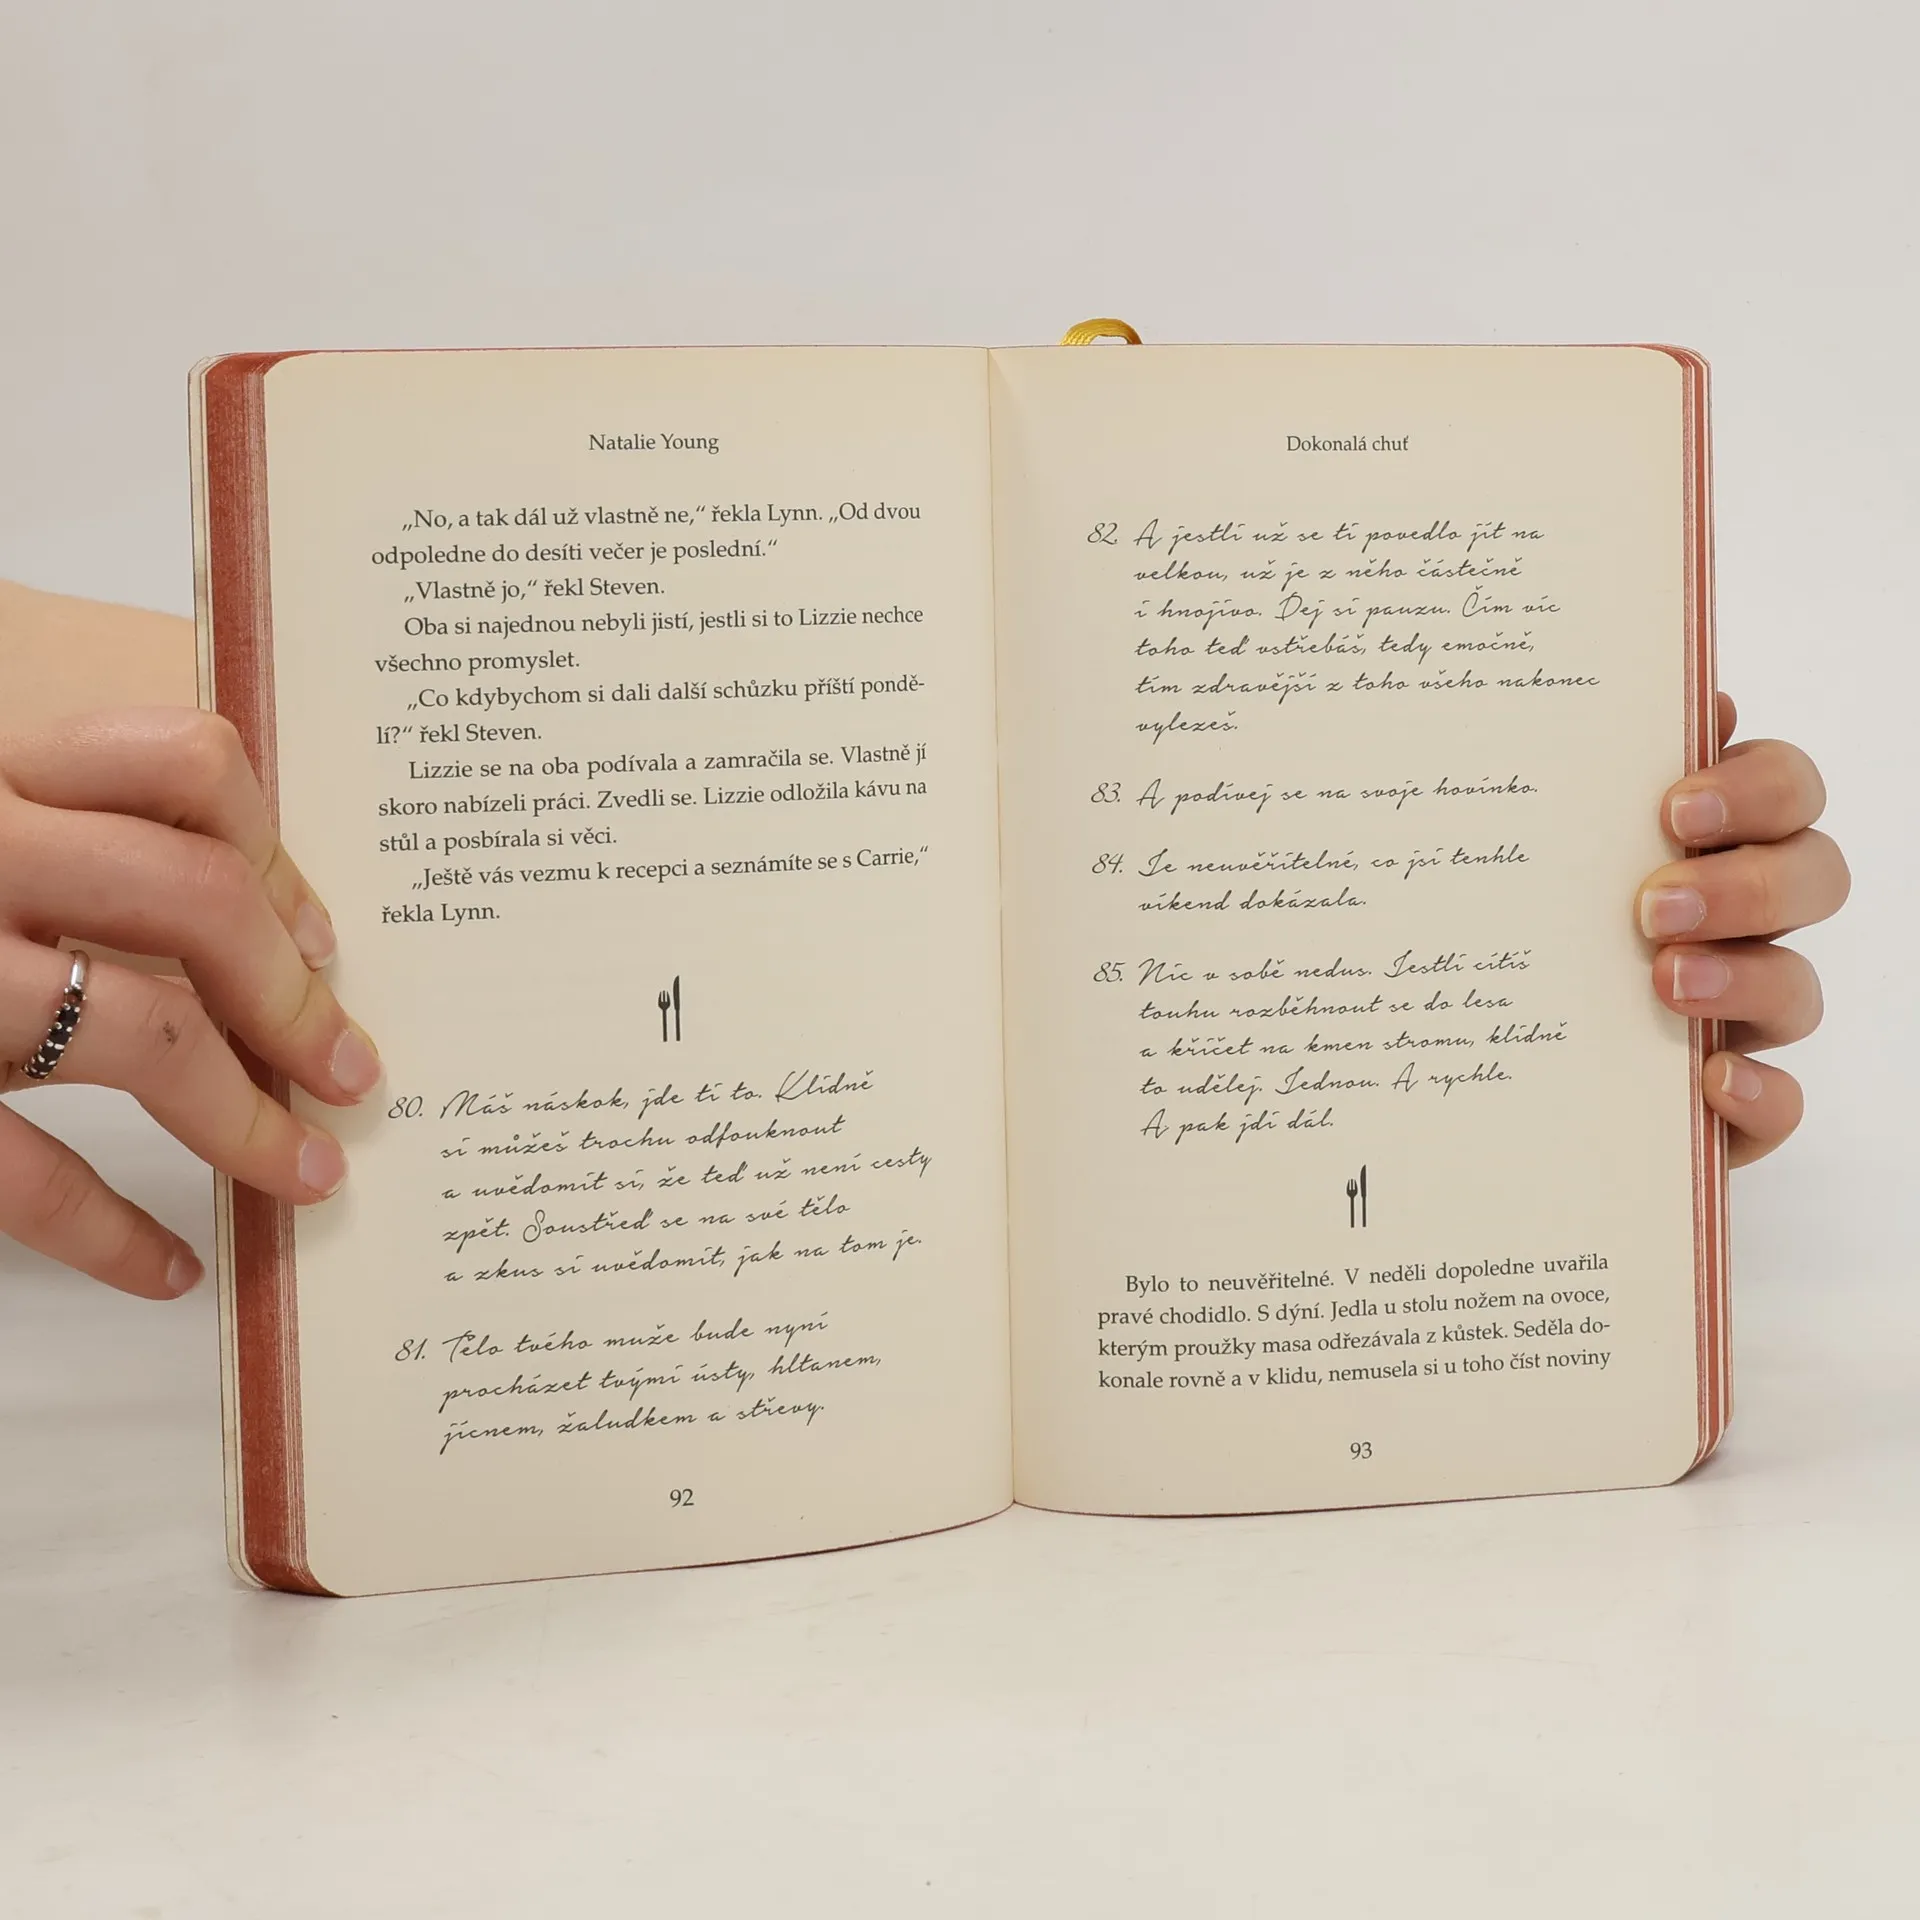 Natalie Young
„No, a tak dál už vlastně ne,“ řekla Lynn. „Od dvou
odpoledne do desíti večer je poslední.“
„Vlastně jo,“ řekl Steven.
Oba si najednou nebyli jistí, jestli si to Lizzie nechce
všechno promyslet.
„Co kdybychom si dali další schůzku příští pondě-
lí?“ řekl Steven.
Lizzie se na oba podívala a zamračila se. Vlastně jí
skoro nabízeli práci. Zvedli se. Lizzie odložila kávu na
stůl a posbírala si věci.
„Ještě vás vezmu k recepci a seznámíte se s Carrie,“
řekla Lynn.
80. Máš náskok, jde ti to. Klidně
si můžeš trochu odfouknout
a uvědomit si, že teď už není cesty
zpět. Soustřeď se na své tělo
a zkus si uvědomit, jak na tom je.
81. Tělo tvého muže bude nyní
procházet tvými ústy, hltanem,
jícnem, žaludkem a střevy.
92
Dokonalá chuť
82. A jestli už se ti povedlo jít na
velkou, už je z něho částečně
i hnojivo. Dej si pauzu. Čím víc
toho teď vstřebáš, tedy emočně,
tím zdravější z toho všeho nakonec
vylezeš.
83. A podívej se na svoje hovínko.
84. Je neuvěřitelné, co jsi tenhle
víkend dokázala.
85. Nic v sobě nedus. Jestli cítíš
touhu rozběhnout se do lesa
a křičet na kmen stromu, klidně
to udělej. Jednou. A rychle.
A pak jdi dál.
Bylo to neuvěřitelné. V neděli dopoledne uvařila
pravé chodidlo. S dýní. Jedla u stolu nožem na ovoce,
kterým proužky masa odřezávala z kůstek. Seděla do-
konale rovně a v klidu, nemusela si u toho číst noviny
93